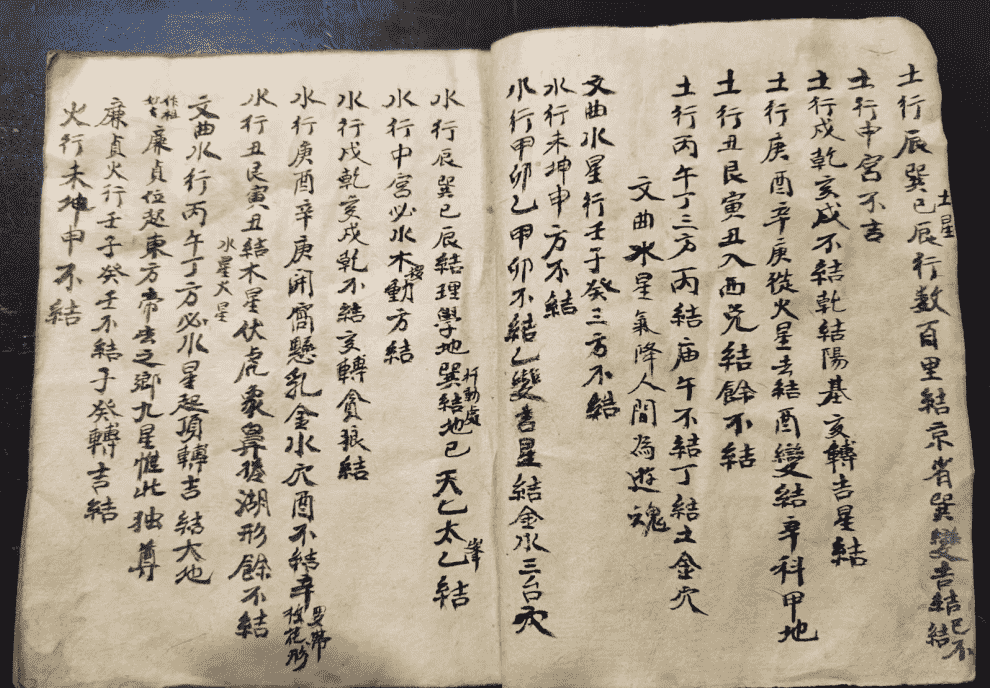 土行辰巽巳辰行数百里結京省巽變吉結巳不結
土星
土行中宮不吉
土行戍乾亥戍不結乾結陽基亥轉吉星結
土行庚酉辛庚從火星去結酉變結辛科甲地
土行丑艮寅丑入西兌結餘不結
土行丙午丁三方丙結庙午不結丁結土金穴
文曲水星氣降人間為遊魂
文曲水星行壬子癸三方不結
水行未坤申方不結
水行甲卯乙甲卯不結乙變吉星結金水三台穴
水行辰巽巳辰結理學地巽結地巳天乙太乙結
行動處
峯
水行中宮必水木動方結
水行戍乾亥戍乾不結亥轉貪狼結
水行庚酉辛庚開窩懸乳金水穴酉不結辛
水行丑艮寅丑結木星伏虎象鼻形餘不結
水星火星
文曲水行丙午丁方必水星起頂轉吉結大地
作祖
廉貞位起東方帝去之鄉九星惟此独尊
廉貞火行壬子癸壬不結子癸轉吉結
火行未坤申不結